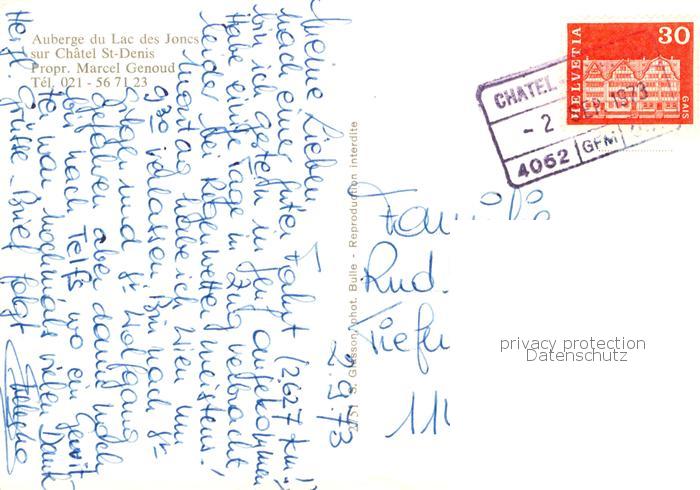 Auberge du Lac des Joncs
sur Châtel St-Denis
Propr. Marcel Genoud
Tél. 021 - 56 71 23
S. Glasson, phot. Bulle - Reproduction interdite
HELVETIA
30
GAIS
CHATEL
- 2 1973
4052 GFM
2.9.73
Meine Lieben
Nach einer guten Fahrt (2627 km!)
bin ich gestern in Genf angekommen
Habe einige Tage in Zug verbracht
leider bei Regenwetter meistens!
Montag habe ich Wien um
9³⁰ verlassen. Bin nach St.
Gilgen und St. Wolfgang
gefahren aber dann noch
bis nach Telfs wo ein
Es war nochmals vielen Dank
Herzl. Grüße - Brief folgt
Familie
Rud.
Tiefe
privacy protection
Datenschutz